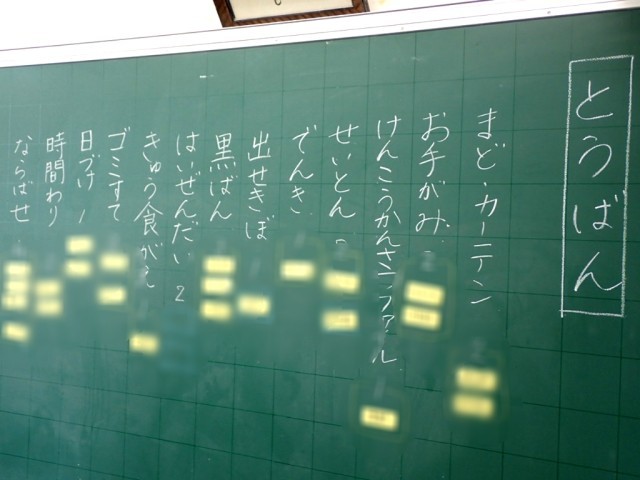 とうばん
まど・カーテン
お手がみ
けんこうかんさつファイル
せいとん
でんき
出せきぼ
黒ばん
はいぜんだい 2
きゅう食がえ
ゴミすて
日づけ 1
時間わり
ならばせ